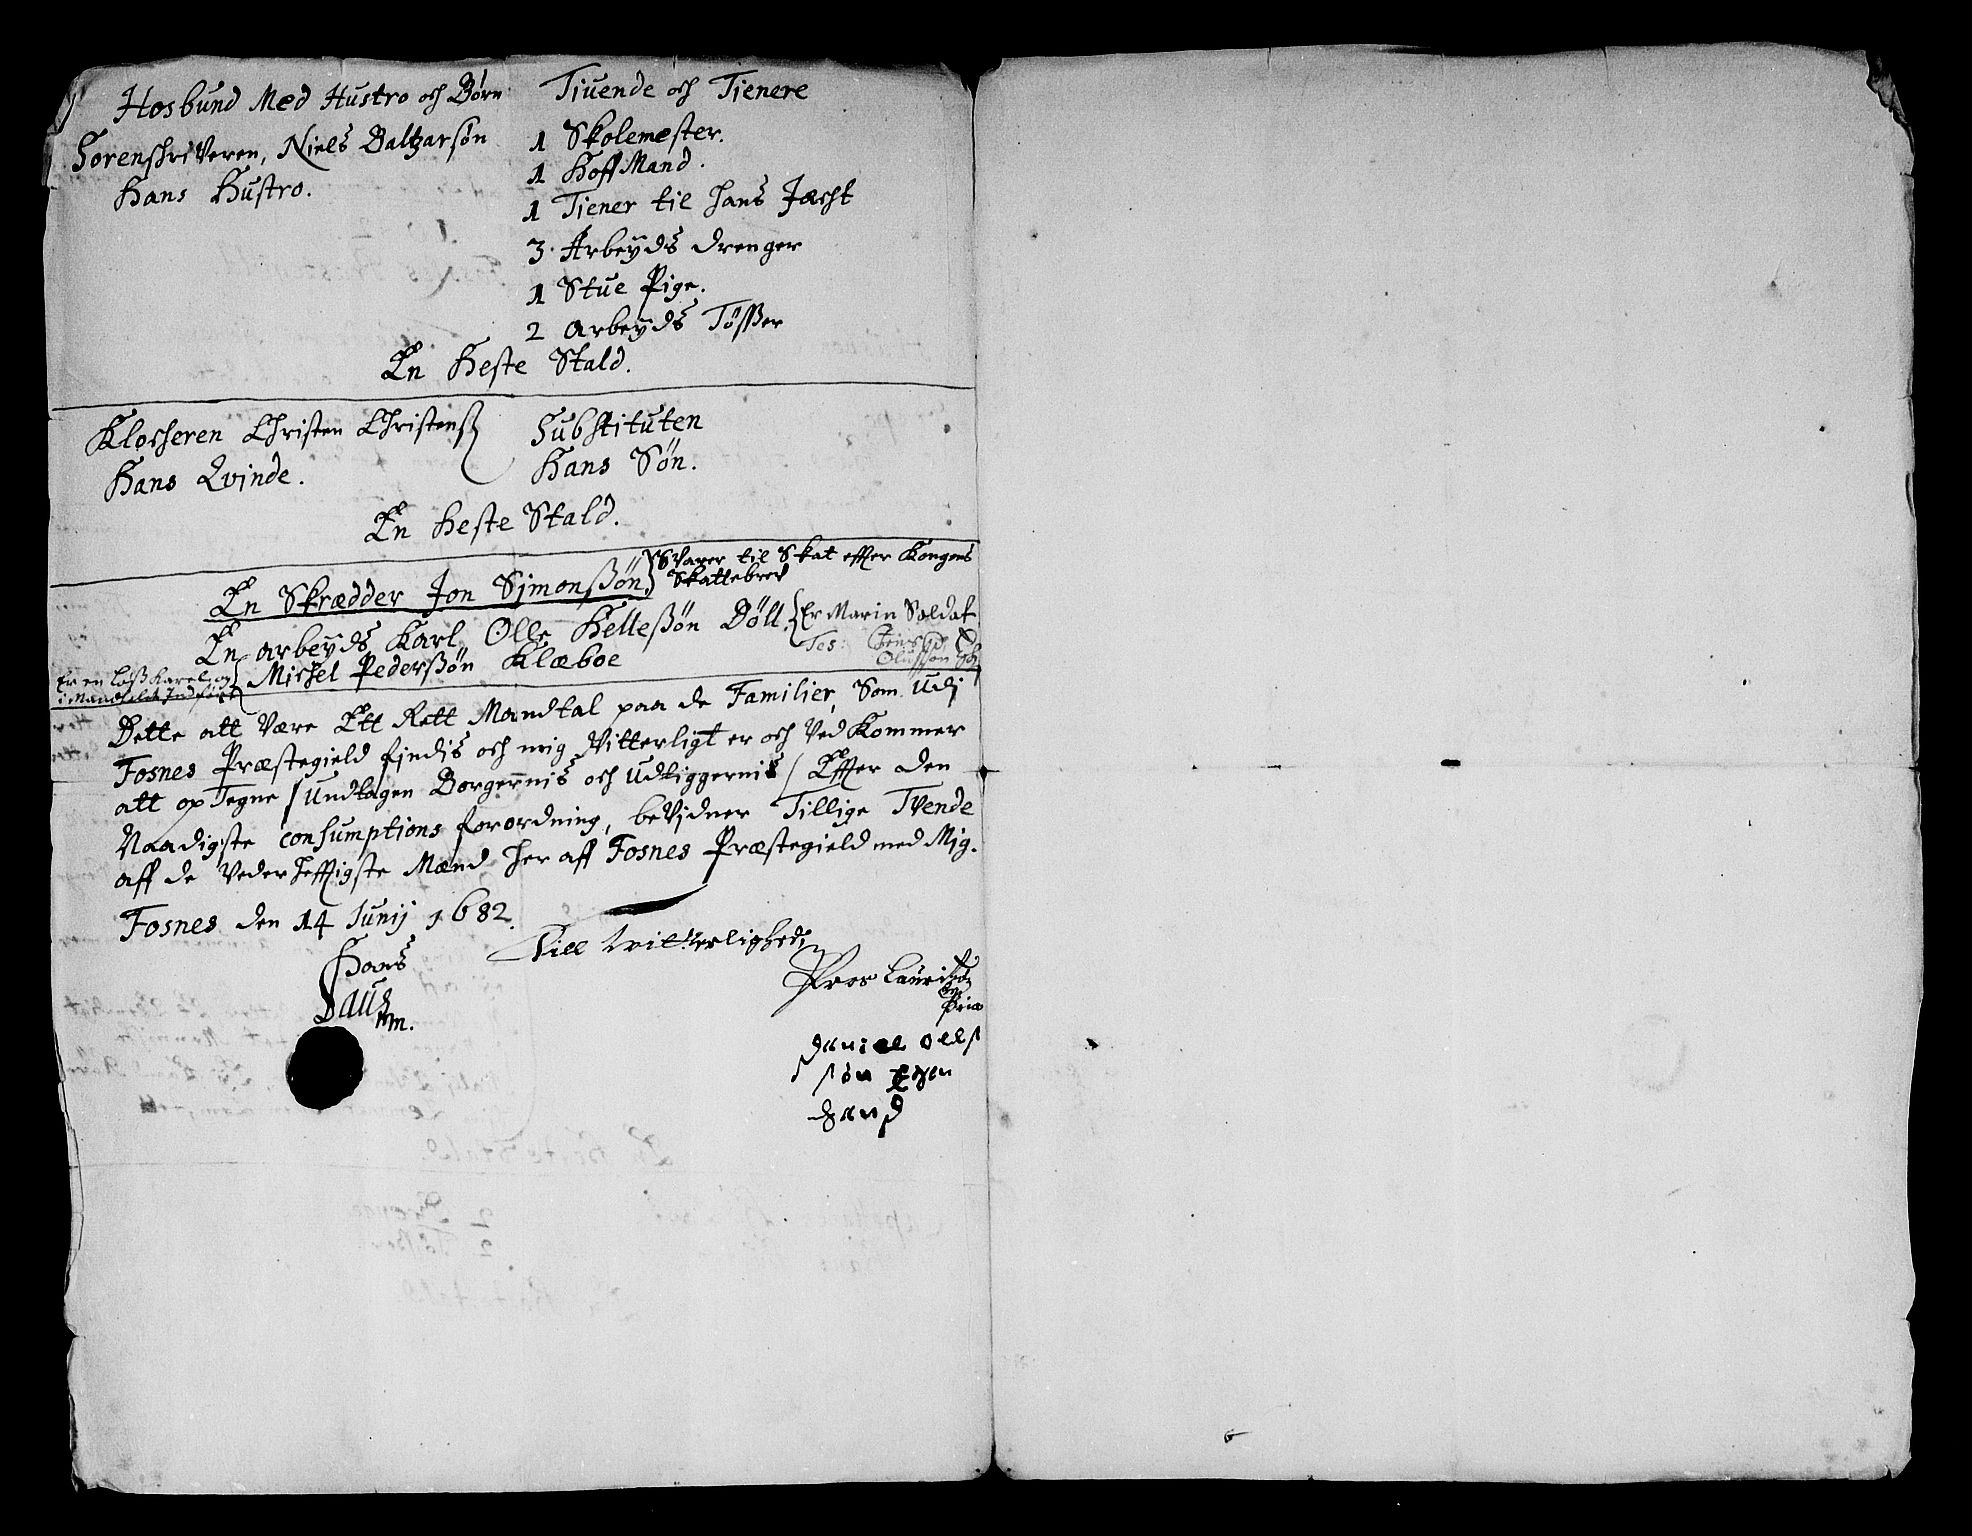 Hosbund Med Hustro och Børn
Sorenschriveren, Niels Baltzarsøn
Hans Hustro.
Tiuende och Tienere
1 Skolemester.
1 Hoff Mand.
1 Tiener til hans Jæcht
3 Arbeyds drenger
1 Stue Pige.
2 arbeyds Tøsser
En Heste Stald.
Klocheren Christen Christenß
Hans Qvinde.
Substituten
Hans Søn.
En Heste Stald.
En Skrædder Jon Simonßøn.
Svarer til Skat effter Kongens
Skattebrev
En arbeyds Karl, Olle Helleßøn Døll.
Er Marin Soldat
Tes:
Oluffsøn
Michel Pederßøn Klæboe
Er en Løß Karel og
i Mandtalet Indført
Dette att Være Ett Rett Mandtal paa de Familier, Som Udj
Fosnes Præstegield findis och mig Vitterligt er och Ved Kommer
att op Tegne / undtagen Borgernis och udliggernis / Effter den
Naadigste Consumptions forordning, beVidner Tillige Tvende
aff de Vederhefftigste Mænd her aff Fosnes Præstegield med Mig.
Fosnes den 14 Junij 1682.
Hans
Till Vitterlighed,
Daniel Olls
søn Egen
Hand